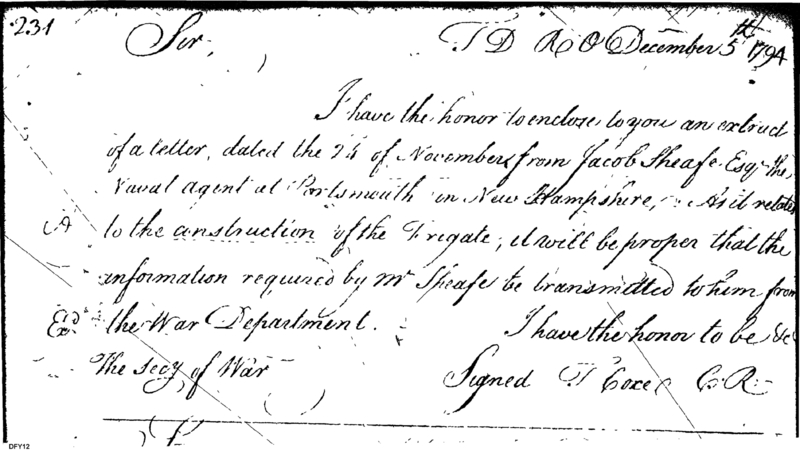 231
Sir, T D R O December 5th 1794
I have the honor to enclose to you an extract
of a letter, dated the 24 of November from Jacob Sheafe Esqr the
Naval agent at Portsmouth in New Hampshire, As it relates
A
to the construction of the Frigate, it will be proper that the
information required by Mr Sheafe be transmitted to him from
Exd the War Department. I have the honor to be &c
The Secy of War Signed T Coxe C. R.
DFY12